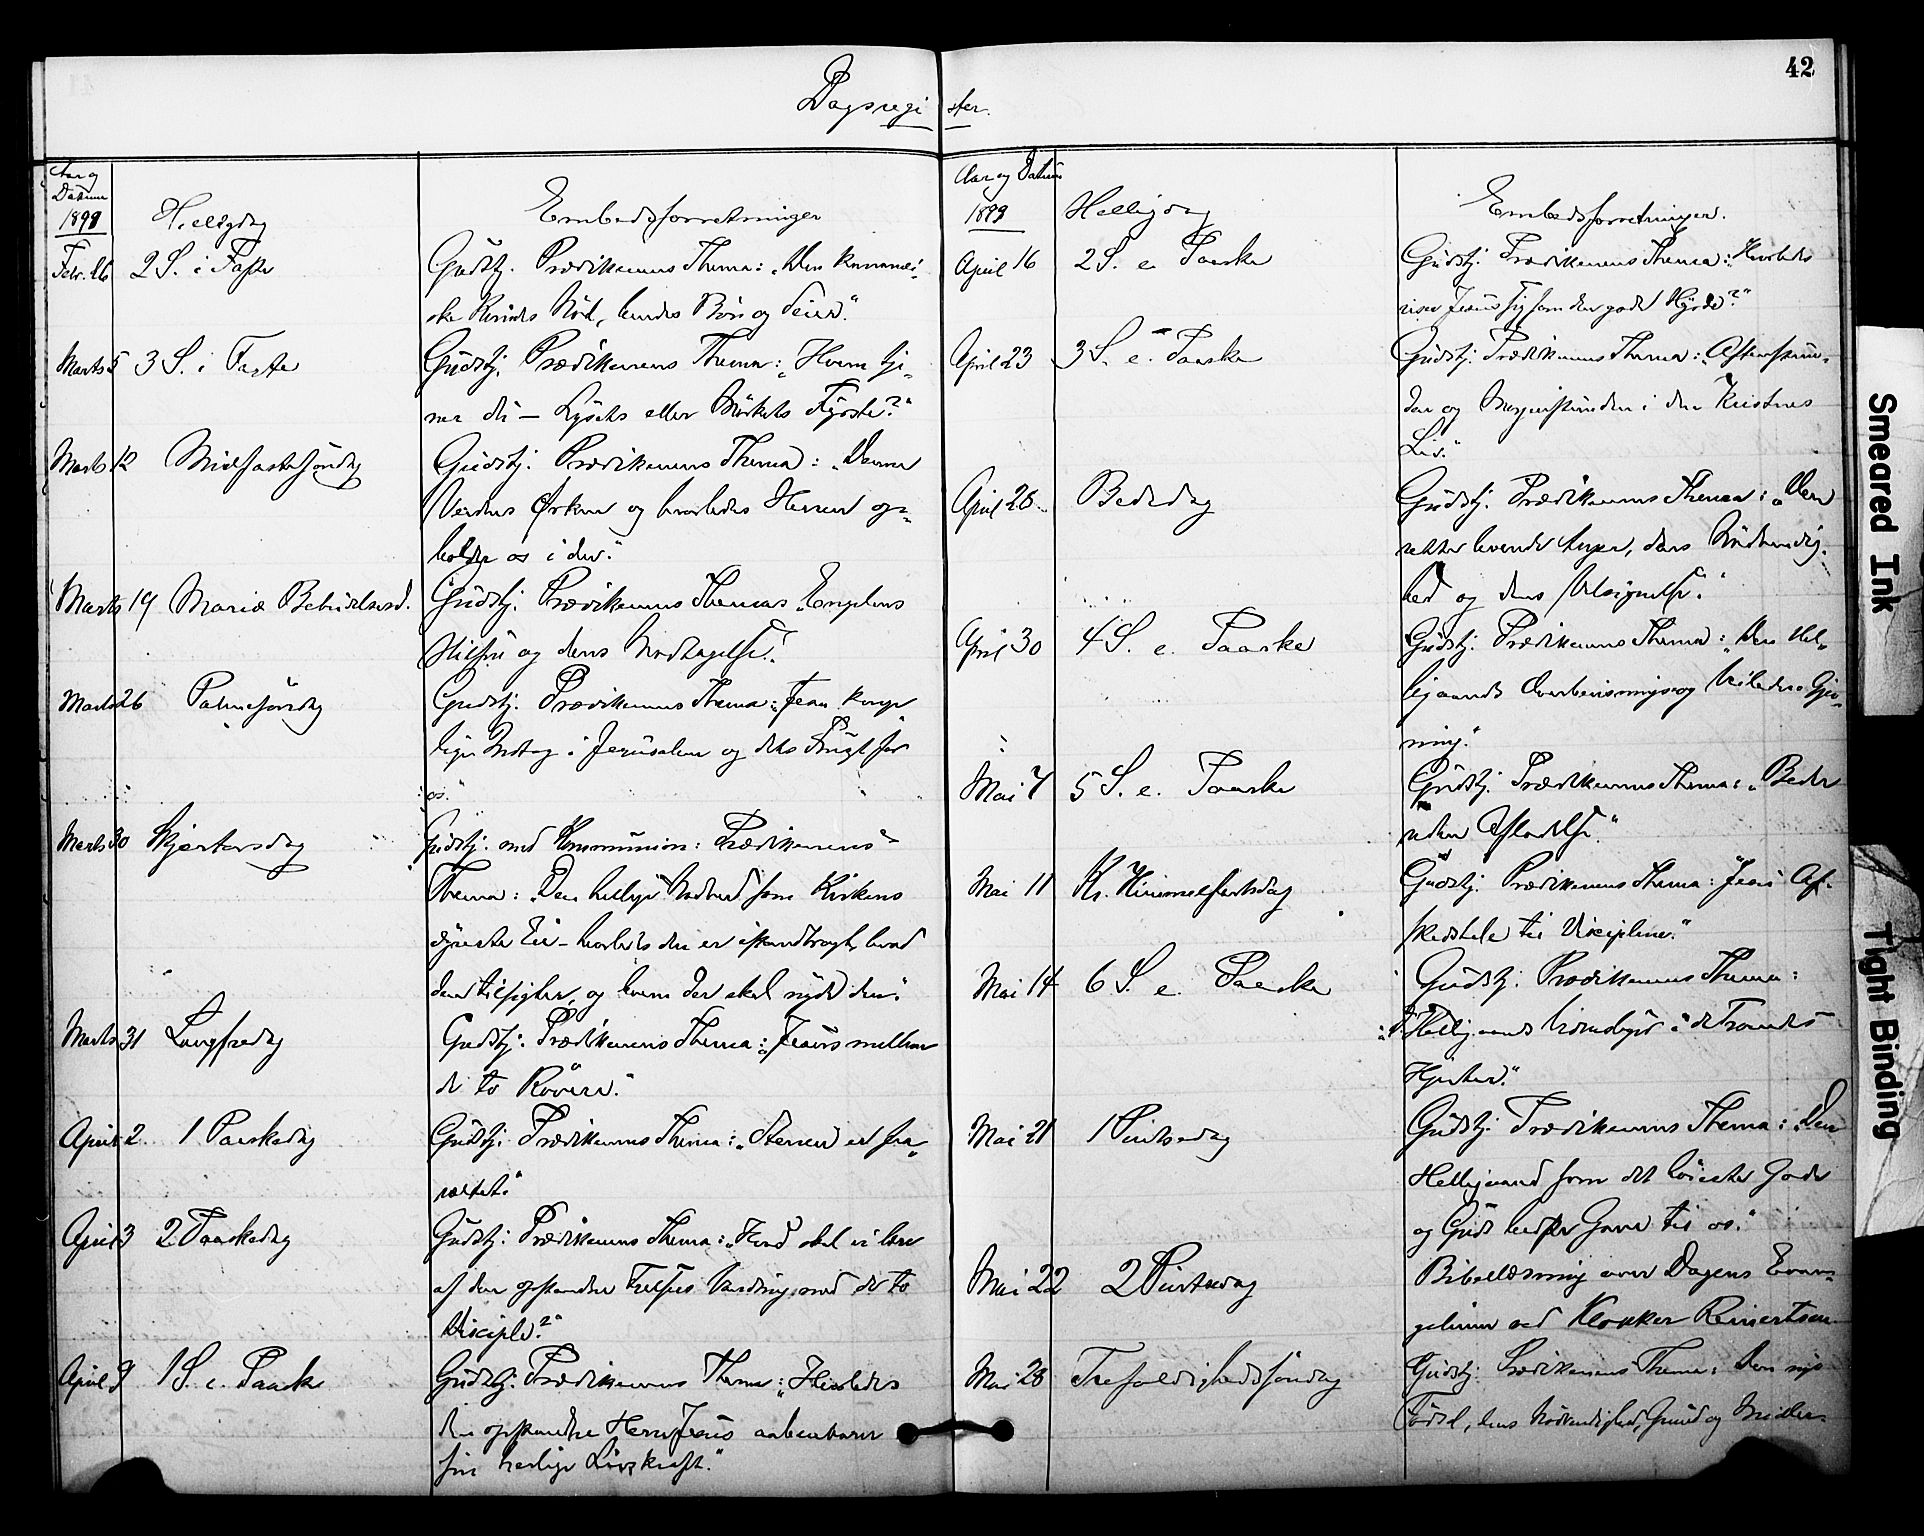 42
Dagsregister.
Aar og
Datum
1899
Helligdag
Embedsforretninger
Febr. 26
2 S. i Faste
Gudstj. Prædikenens Thema: „Den kananæi-
ske Kvindes Nød, hendes Bøn og Seier."
Marts 5
3 S. i Faste
Gudstj. Prædikenens Thema: „Hvem tje-
ner du — Lysets eller Mørkets Fyrste?"
Marts 12
Midfastesøndag
Gudstj. Prædikenens Thema: „Denne
Verdens Ørken og hvorledes Herren op-
holder os i den."
Marts 19
Mariæ Bebudelsesd.
Gudstj. Prædikenens Thema: „Engelens
Hilsen og dens Modtagelse."
Marts 26
Palmesøndag
Gudstj. Prædikenens Thema: „Jesu konge-
lige Indtog i Jerusalem og dets Frugt for
os."
Marts 30
Skjærtorsdag
Gudstj. med Kommunion: Prædikenens
Thema: „Den hellige Nadver som Kirkens
dyreste Eie – hvorledes den er istandbragt, hvad
den tilsigter, og hvem der skal nyde den."
Marts 31
Langfredag
Gudstj. Prædikenens Thema: „Jesus mellem
de to Røvere."
April 2
1 Paaskedag
Gudstj. Prædikenens Thema: „Stenen er fra-
væltet."
April 3
2 Paaskedag
Gudstj. Prædikenens Thema: „Hvad skal vi lære
af den opstandne Frelsers Vandring med de to
Disciple?"
April 9
1 S. e. Paaske
Gudstj. Prædikenens Thema: „Hvorledes
den opstandne Herre Jesus aabenbarer
sin herlige Livskraft."
Aar og Datum
1899
Helligdag
Embedsforretninger.
April 16
2 S. e. Paaske
Gudstj. Prædikenens Thema: „Hvorledes
viser Jesus sig som den gode Hyrde?"
April 23
3 S. e. Paaske
Gudstj. Prædikenens Thema: „Aftenstun-
den og Morgenstunden i den Kristnes
Liv."
April 28
Bededag
Gudstj. Prædikenens Thema: „Den
rette levende Anger, dens Nødvendig-
hed og dens Velsignelse."
April 30
4 S. e. Paaske
Gudstj. Prædikenens Thema: „Den Hel-
ligaands Overbevisnings- og Veileder-Gjer-
ning."
Mai 7
5 S. e. Paaske
Gudstj. Prædikenens Thema: „Beder
uden Afladelse."
Mai 11
Kr. Himmelfartsdag
Gudstj. Prædikenens Thema: Jesu Af-
skedstale til Disciplene."
Mai 14
6 S. e. Paaske
Gudstj. Prædikenens Thema:
„D. Hellig aands Vidnesbyrd i de Troendes
Hjerter."
Mai 21
1 Pintsedag
Gudstj. Prædikenens Thema: „Den
Helligaand som det høieste Gode
og Guds bedste Gave til os."
Mai 22
2 Pintsedag
Bibellæsning over Dagens Evan-
gelium ved Klokker Reinertsen
Mai 28
Trefoldighedssøndag
Gudstj. Prædikenens Thema: Den nye
Fødsel, dens Nødvendighed, Grund og Midler
Smeared Ink
Tight Binding